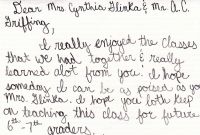 Dear Mrs Cynthia Glinka & Mr. A.C.
Griffing,
I really enjoyed the classes
that we had together & really
learned alot from you. I hope
someday I can be as poised as you
Mrs. Glinka. I hope you both keep
on teaching this class for future
6th - 7th graders.